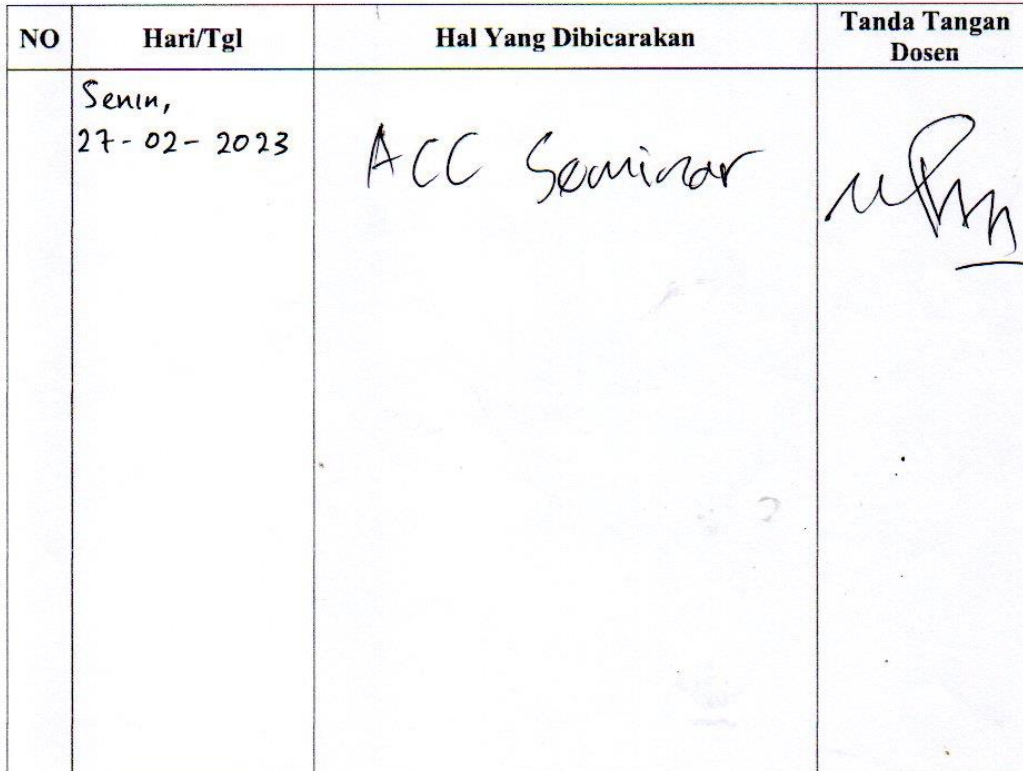 NO Hari/Tgl Hal Yang Dibicarakan Tanda Tangan
Dosen
Senin,
27-02-2023
ACC Seminar